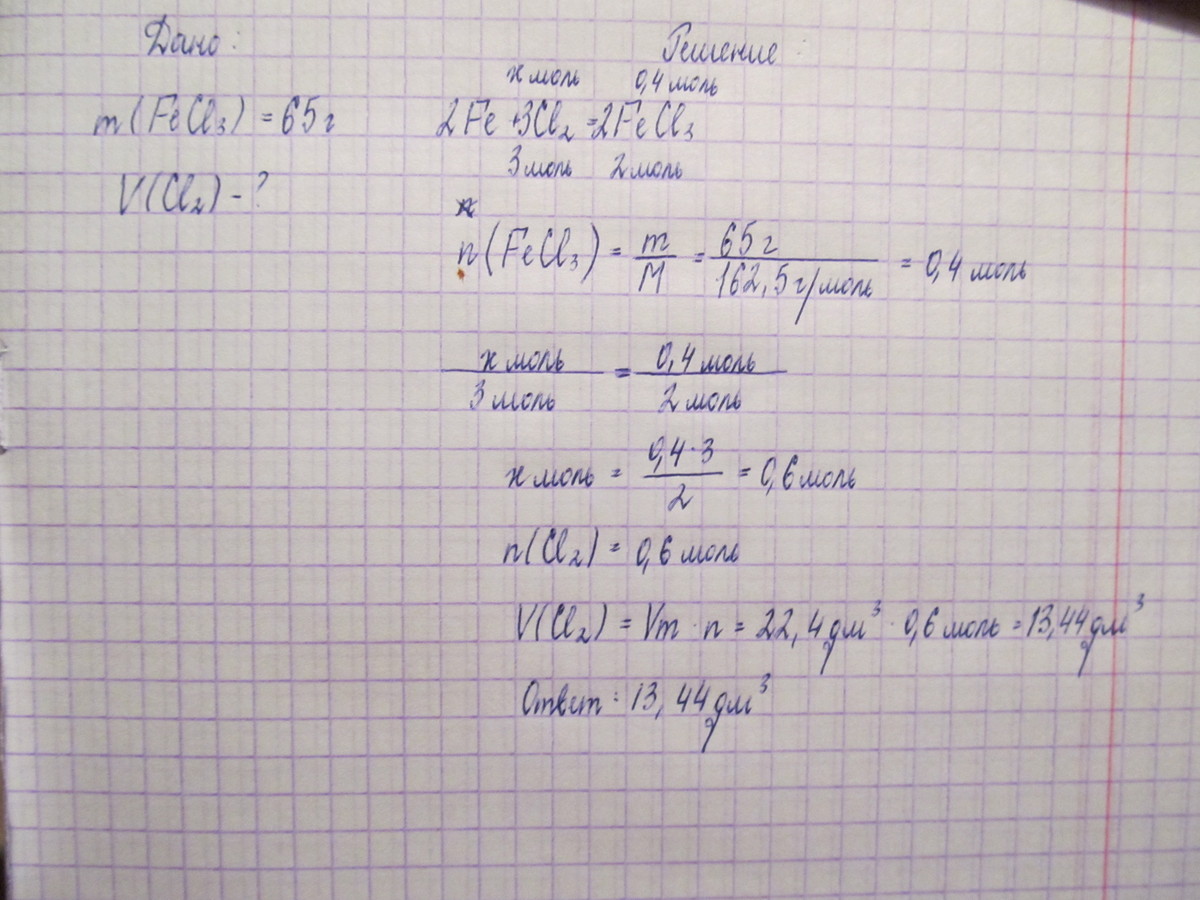 Дано:
m(FeCl₃) = 65 г
V(Cl₂) - ?
Решение:
x моль 0,4 моль
2Fe + 3Cl₂ = 2FeCl₃
3 моль 2 моль
n(FeCl₃) = m/M = 65 г/162,5 г/моль = 0,4 моль
x моль/3 моль = 0,4 моль/2 моль
x моль = 0,4·3/2 = 0,6 моль
n(Cl₂) = 0,6 моль
V(Cl₂) = Vm · n = 22,4 дм³ · 0,6 моль = 13,44 дм³
Ответ: 13,44 дм³